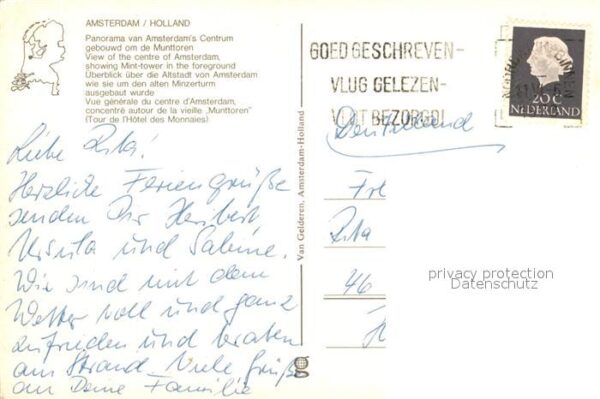 AMSTERDAM / HOLLAND
Panorama van Amsterdam's Centrum
gebouwd om de Munttoren
View of the centre of Amsterdam,
showing Mint-tower in the foreground
Überblick über die Altstadt von Amsterdam
wie sie um den alten Minzerturm
ausgebaut wurde
Vue générale du centre d'Amsterdam,
concentré autour de la vieille „Munttoren”
(Tour de l'Hôtel des Monnaies)
Liebe Rita!
Herzliche Feriengrüße
senden Dir Heribert
Ursula und Sabine.
Wir sind mit dem
Wetter voll und ganz
zufrieden und braten
am Strand. Viele Grüße
an Deine Familie
Van Gelderen, Amsterdam-Holland
g
GOED GESCHREVEN-
VLUG GELEZEN-
VLUG BEZORGD!
20C
NEDERLAND
Deutschland
Rita
46
privacy protection
Datenschutz